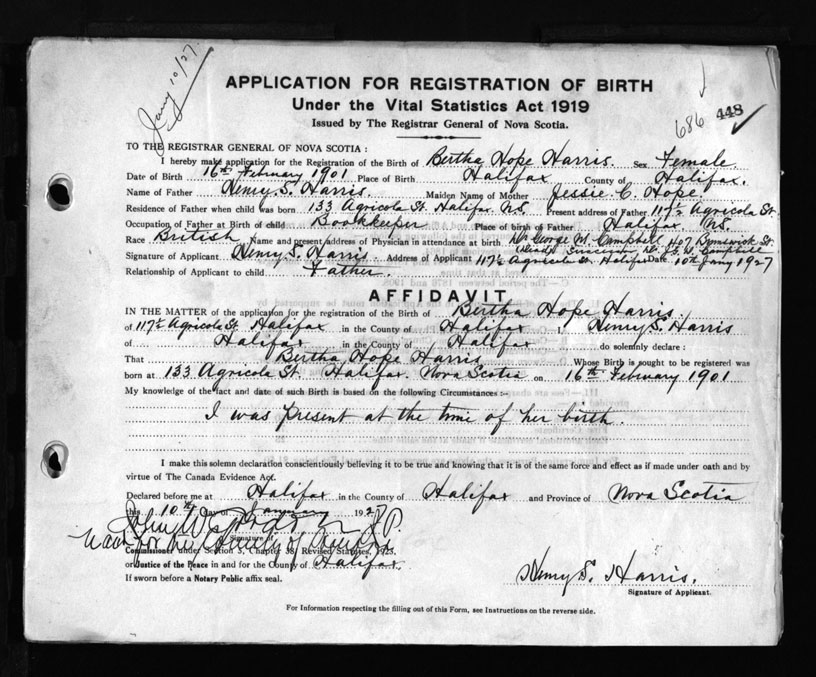 Jany 10/27
APPLICATION FOR REGISTRATION OF BIRTH
Under the Vital Statistics Act 1919
Issued by The Registrar General of Nova Scotia.
686 448
TO THE REGISTRAR GENERAL OF NOVA SCOTIA :
I hereby make application for the Registration of the Birth of Bertha Hope Harris. Sex Female
Date of Birth 16th February 1901 Place of Birth Halifax County of Halifax.
Name of Father Henry S. Harris. Maiden Name of Mother Jessie C. Hope
Residence of Father when child was born 133 Agricola St. Halifax N.S. Present address of Father 117½ Agricola St.
Occupation of Father at Birth of child Bookkeeper Place of birth of Father Halifax NS.
Race British Name and present address of Physician in attendance at birth Dr. George M. Campbell 407 Brunswick St.
(Dead) Campbell
Signature of Applicant Henry S. Harris. Address of Applicant 117½ Agricola St. Halifax Date 10th Jany 1927
Relationship of Applicant to child Father.
AFFIDAVIT
IN THE MATTER of the application for the registration of the Birth of Bertha Hope Harris.
of 117½ Agricola St. Halifax in the County of Halifax I, Henry S. Harris
of Halifax in the County of Halifax do solemnly declare :
That Bertha Hope Harris Whose Birth is sought to be registered was
born at 133 Agricola St. Halifax. Nova Scotia on 16th February 1901
My knowledge of the fact and date of such Birth is based on the following Circumstances :-
I was present at the time of her birth.
I make this solemn declaration conscientiously believing it to be true and knowing that it is of the same force and effect as if made under oath and by
virtue of The Canada Evidence Act.
Declared before me at Halifax in the County of Halifax and Province of Nova Scotia
this 10th day of January 1927
John W. J.P.
Signature of
for the County of
Commissioner under Section 3, Chapter 38, Revised Statutes, 1923.
or Justice of the Peace in and for the County of Halifax.
If sworn before a Notary Public affix seal.
Henry S. Harris.
Signature of Applicant.
For Information respecting the filling out of this Form, see Instructions on the reverse side.